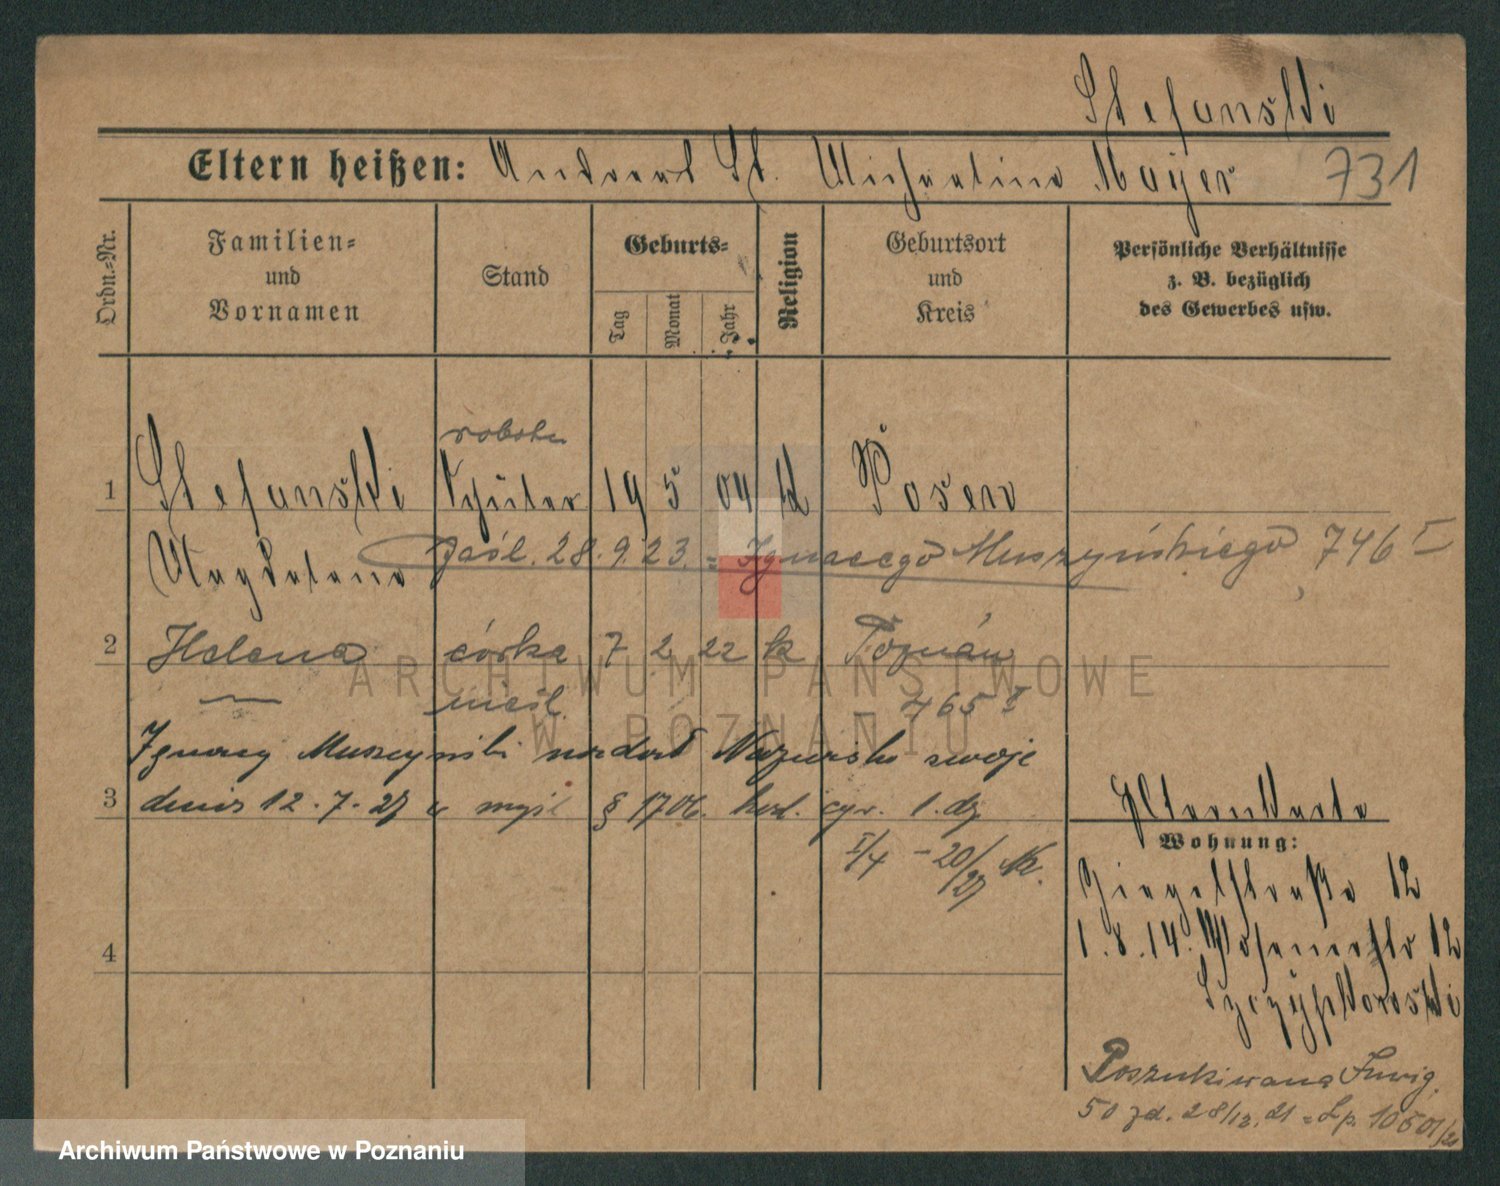 Stefanski
Eltern heißen: Andreas St. Michaelina Mayer 731
Ordn.-Nr.
Familien-
und
Vornamen
Stand
Geburts-
Tag
Monat
Jahr
Religion
Geburtsort
und
Kreis
Persönliche Verhältnisse
z. B. bezüglich
des Gewerbes usw.
robotn
1 Stefanski 19 5 04 k Posen
Magdalena
zaśl. 28.9.23. = Ignacego Muszyńskiego, 746 I
2 Helena córka 7 2 22 k Poznań
nieśl. 765 I
Ignacy Muszyński nadał Nazwisko swoje
3 dnia 12.7.27 w myśl § 1706. kod. cyw. 1. dz
I/4 - 20/27
Elternkarte
Wohnung:
Ziegelstraße 12
1.8.14. Posenerstr 12
4
Poszukiwana
50 zd. 28/12.21 = Lp. 10501/21
ARCHIWUM PAŃSTWOWE
W POZNANIU
Archiwum Państwowe w Poznaniu